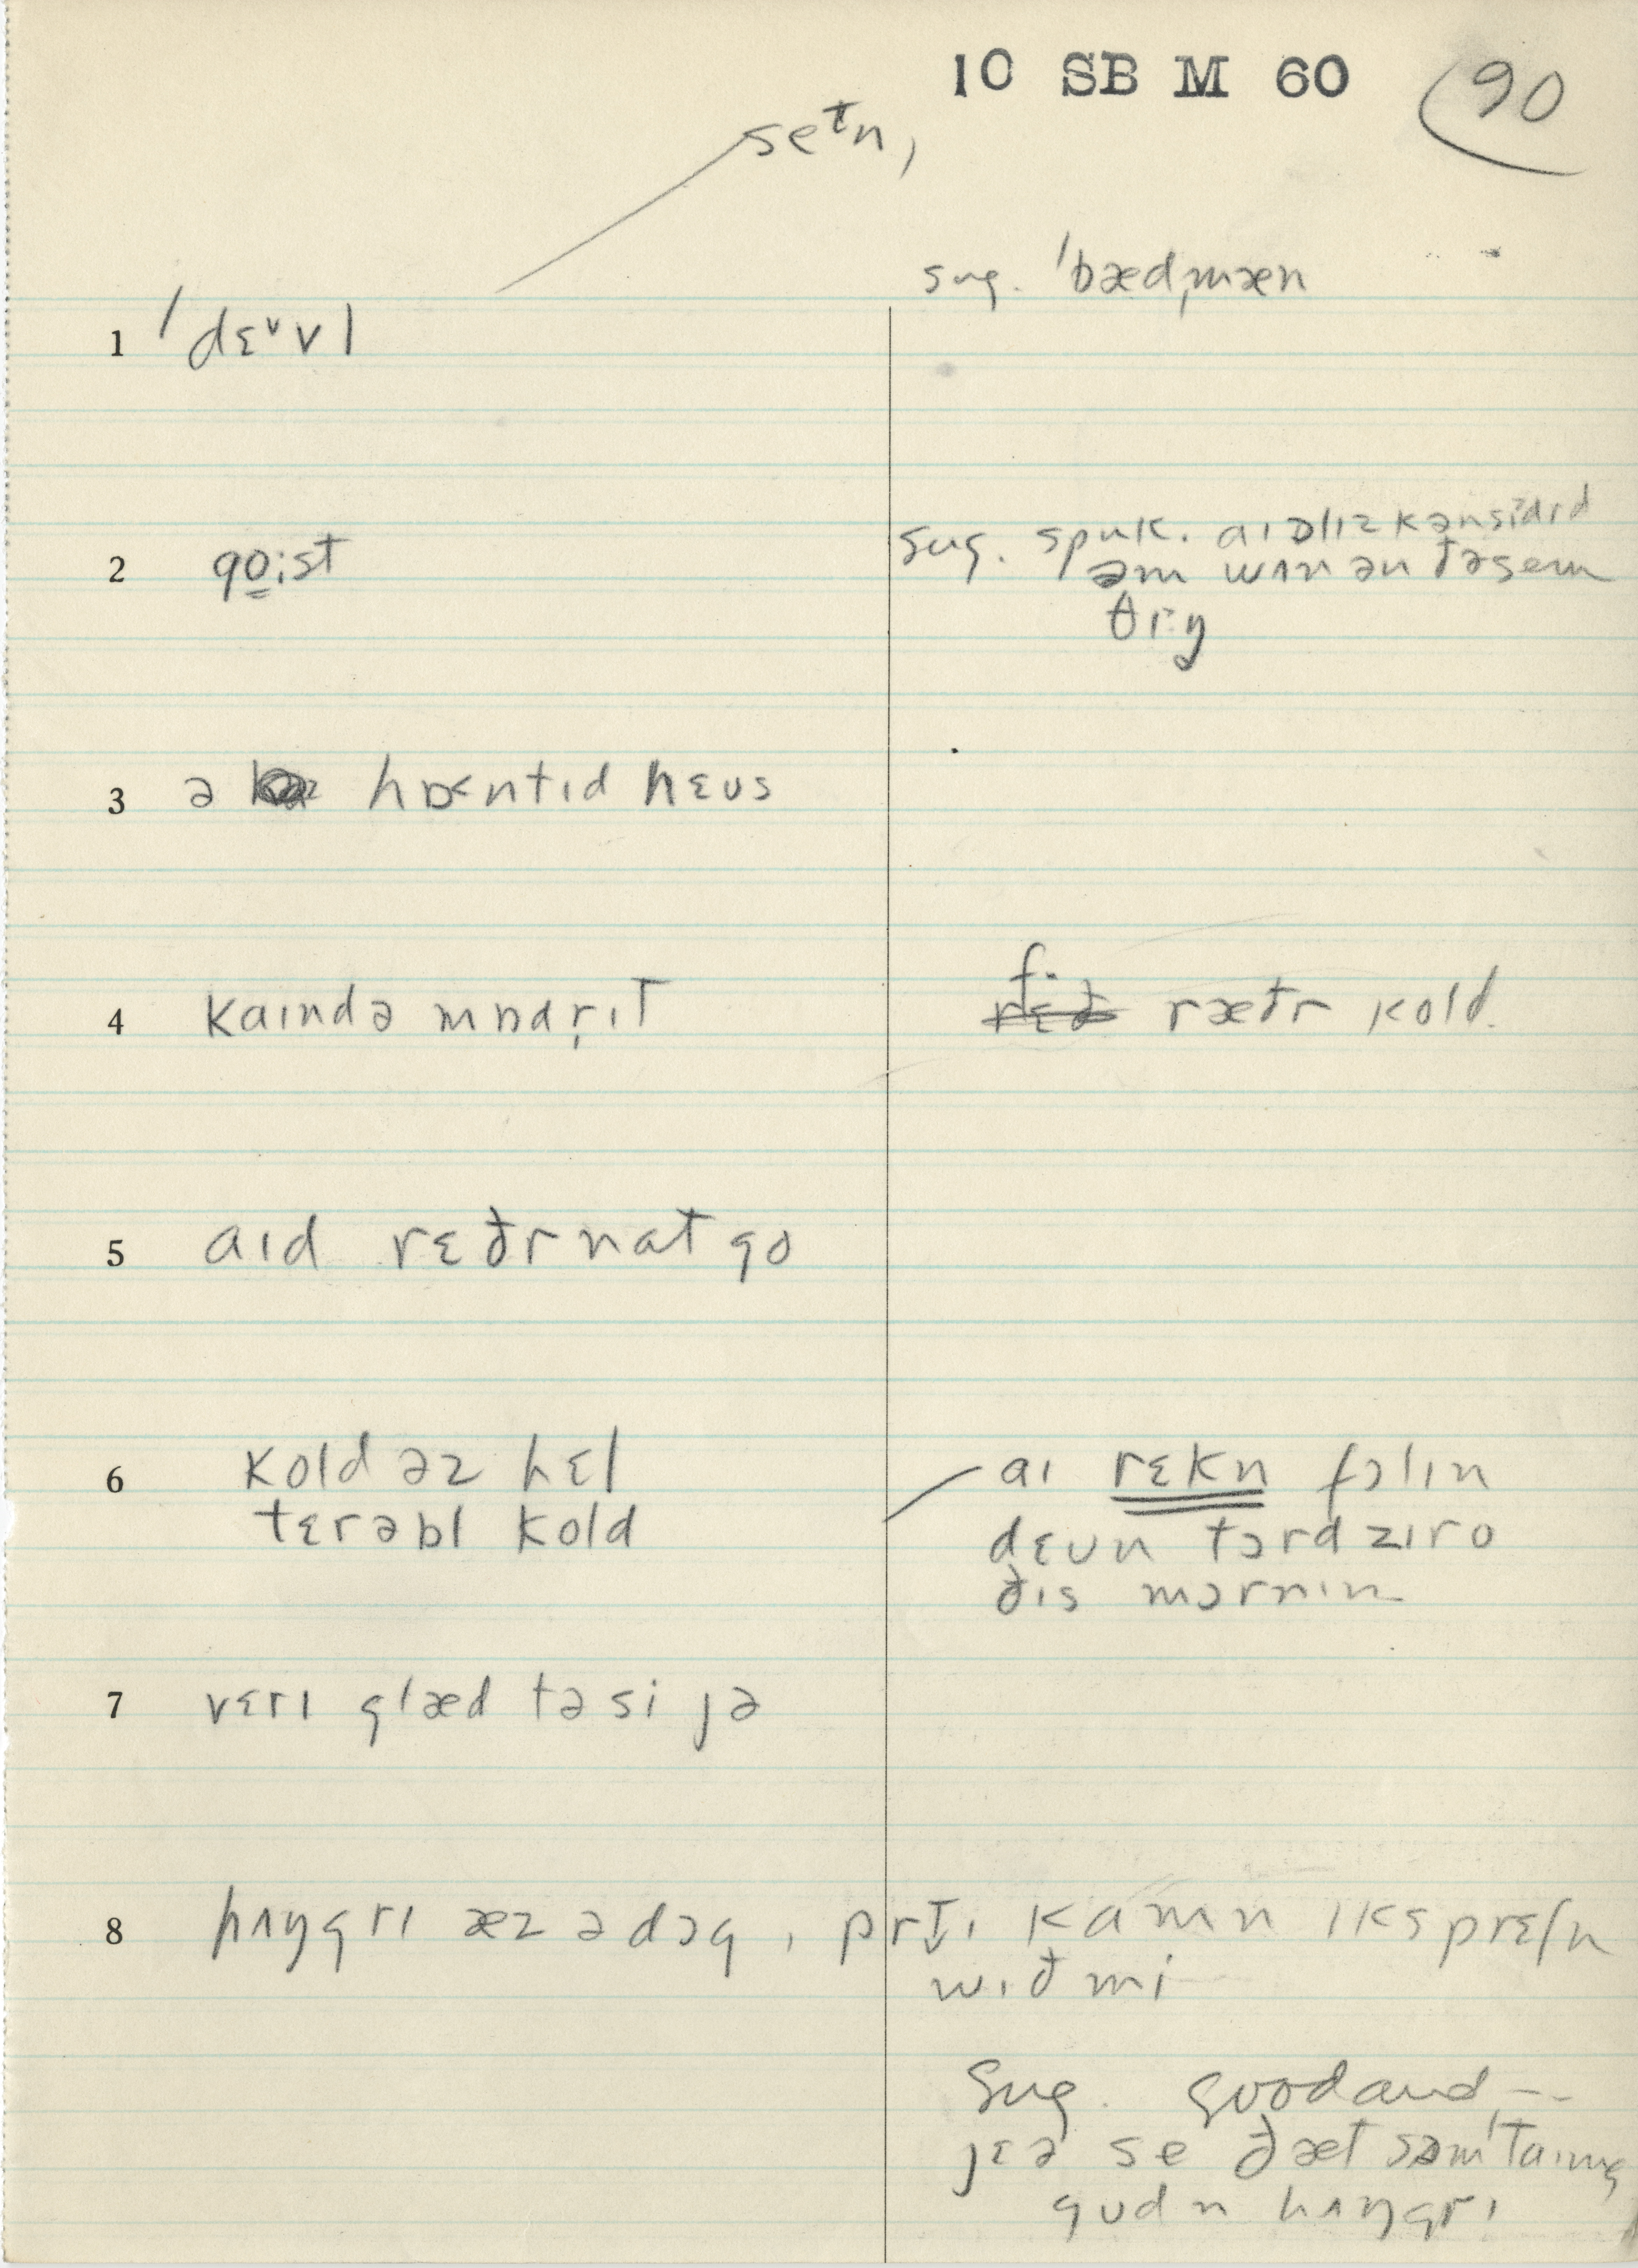 10 SB M 60 90
setn,
sug. ˈbædˌmæn
1 ˈdɛᵛvl
2 go̳ːst
sug. spuk. aɪ ɔlɪz kənsidrd
əm wʌn ən ðə sem
θɪŋ
3 ə hɒ<ntɪd hɛʊs
4 kaɪndə mɒdṛɪt
f.
rɛð ræðr kold.
5 aɪd rɛðr nat go
6 kold əz hɛl
tɛrəbl kold
aɪ rɛkn fɔlɪn
dɛʊn tɔrd zɪro
ðɪs mɔrnɪn
7 vɛrɪ glæd tə si jə
8 hʌŋgrɪ æz ə dɔg, prt̬ɪ kamn ɪksprɛʃn
wɪð mi
Sug. good and —
jɛə se ðæt səmˈtaɪmz
gʊd n hʌŋgrɪ